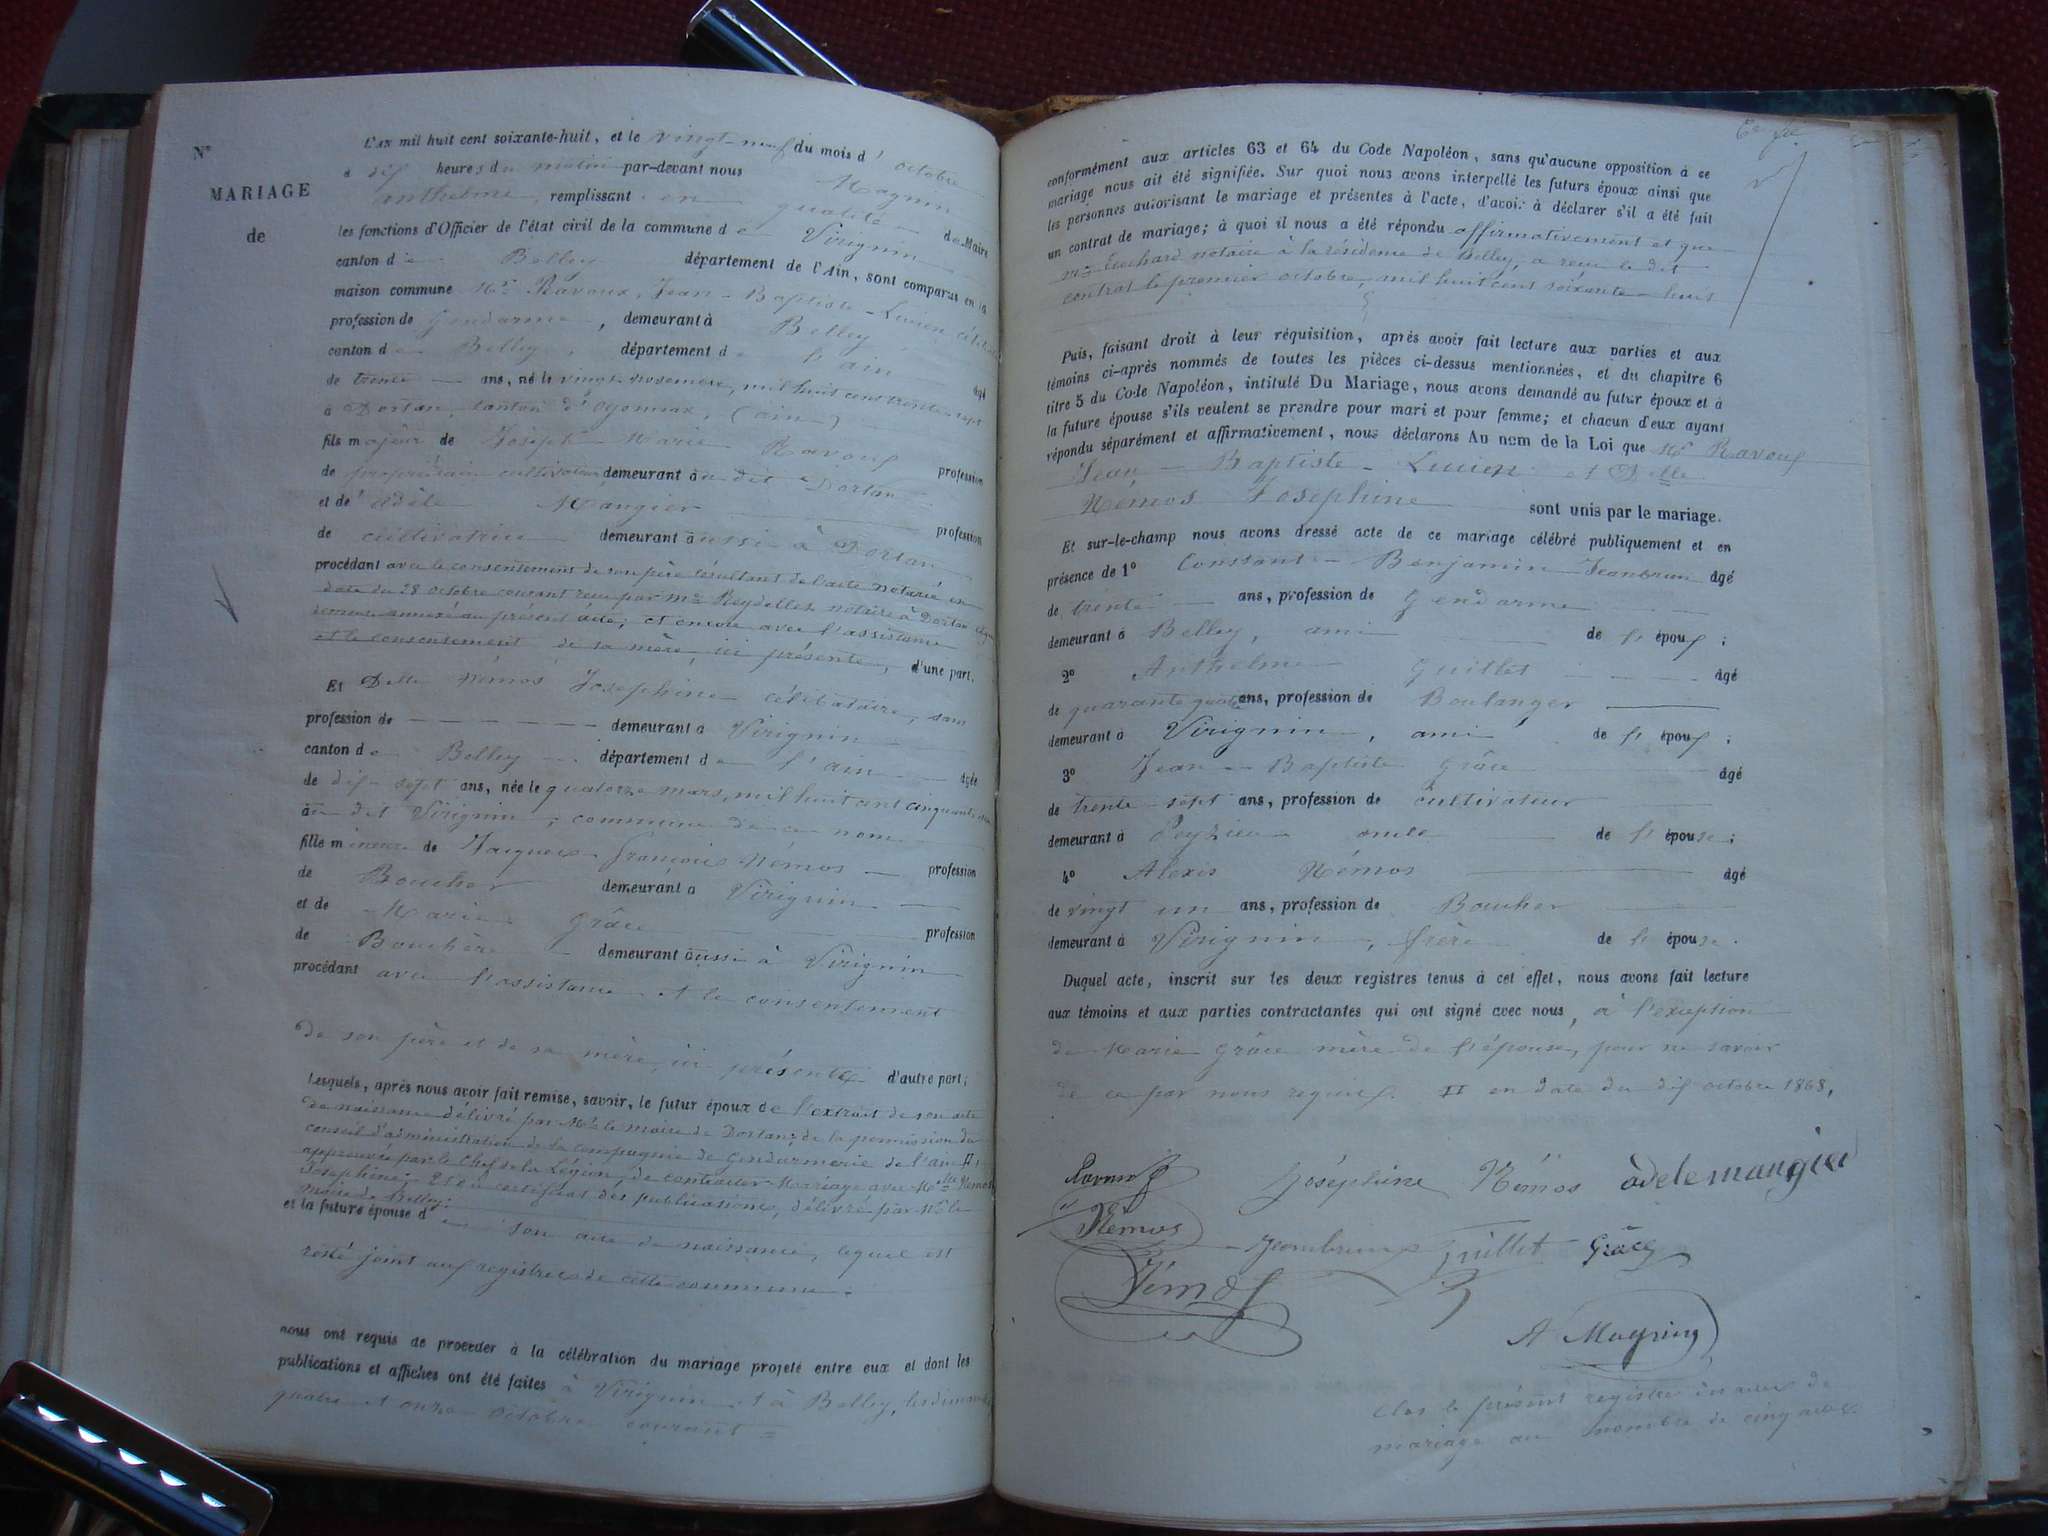 N°
MARIAGE
de
L'AN mil huit cent soixante-huit, et le vingt-neuf du mois d'octobre
à dix heures du matin par-devant nous Magnin
anthelme, remplissant en qualité de Maire
les fonctions d'Officier de l'état civil de la commune de Virignin
canton de Belley département de l'Ain, sont comparus en la
maison commune Mr Ravoux, Jean-Baptiste-Lucien célibataire
profession de Gendarme, demeurant à Belley
canton de Belley, département de l'ain âgé
de trente ans, né le vingt novembre, mil huit cent trente-sept
à Dortan, canton d'oyonnax, (ain)
fils majeur de Joseph-Marie Ravoux profession
de propriétaire cultivateur demeurant audit Dortan
et de adèle Mangier profession
de cultivatrice demeurant aussi à Dortan
procédant avec le consentement de son père résultant de l'acte notarié en
date du 28 octobre courant reçu par me Reydellet notaire à Dortan
demeuré annexé au présent acte; et encore avec l'assistance
et le consentement de sa mère, ici présente, d'une part.
Et Delle Némos Josephine célibataire, sans
profession de demeurant à Virignin
canton de Belley département de l'ain âgée
de dix-sept ans, née le quatorze mars, mil huit cent cinquante
au dit Virignin, commune de ce nom
fille mineure de Jacques François Némos profession
de Boucher demeurant à Virignin
et de Marie Grâce profession
de Bouchère demeurant aussi à Virignin
procédant avec l'assistance et le consentement
de son père et de sa mère, ici présents d'autre part;
Lesquels, après nous avoir fait remise, savoir, le futur époux de l'extrait de son acte
de naissance délivré par Mr le maire de Dortan; de la permission du
conseil d'administration de la compagnie de Gendarmerie de l'ain II
approuvée par le Chef de la Légion, de contracter Mariage avec Melle Némos
Josephine; Et du certificat des publications, délivré par Mr le
maire de Belley;
et la future épouse de son acte de naissance, lequel est
resté joint aux registres de cette commune.
nous ont requis de procéder à la célébration du mariage projeté entre eux et dont les
publications et affiches ont été faites à Virignin et à Belley, les dimanches
quatre et onze octobre courant =
conformément aux articles 63 et 64 du Code Napoléon, sans qu'aucune opposition à ce
mariage nous ait été signifiée. Sur quoi nous avons interpellé les futurs époux ainsi que
les personnes autorisant le mariage et présentes à l'acte, d'avoir à déclarer s'il a été fait
un contrat de mariage; à quoi il nous a été répondu affirmativement et que
me notaire à la résidence de Belley, a reçu le dit
contrat le premier octobre, mil huit cent soixante-huit
Puis, faisant droit à leur réquisition, après avoir fait lecture aux parties et aux
témoins ci-après nommés de toutes les pièces ci-dessus mentionnées, et du chapitre 6
titre 5 du Code Napoléon, intitulé Du Mariage, nous avons demandé au futur époux et à
la future épouse s'ils veulent se prendre pour mari et pour femme; et chacun d'eux ayant
répondu séparément et affirmativement, nous déclarons Au nom de la Loi que Mr Ravoux
Jean-Baptiste-Lucien et Delle
Némos Josephine sont unis par le mariage.
Et sur-le-champ nous avons dressé acte de ce mariage célébré publiquement et en
présence de 1° Constant-Benjamin Jeanbrun âgé
de trente ans, profession de Gendarme
demeurant à Belley, ami de l'époux;
2° Anthelme Guillet âgé
de quarante quatre ans, profession de Boulanger
demeurant à Virignin, ami de l'époux;
3° Jean-Baptiste Grâce âgé
de trente-sept ans, profession de cultivateur
demeurant à Peyzieu oncle de l'épouse;
4° Alexis Némos âgé
de vingt un ans, profession de Boucher
demeurant à Virignin, frère de l'épouse.
Duquel acte, inscrit sur les deux registres tenus à cet effet, nous avons fait lecture
aux témoins et aux parties contractantes qui ont signé avec nous, à l'exception
de Marie Grâce mère de l'épouse, pour ne savoir
de ce par nous requise. II en date du dix octobre 1868,
Ravoux Joséphine Némos adele mangier
Némos Jeanbrun Guillet Grâce
Némos
A Magnin
Clos le présent registre des actes de
mariage au nombre de cinq actes.